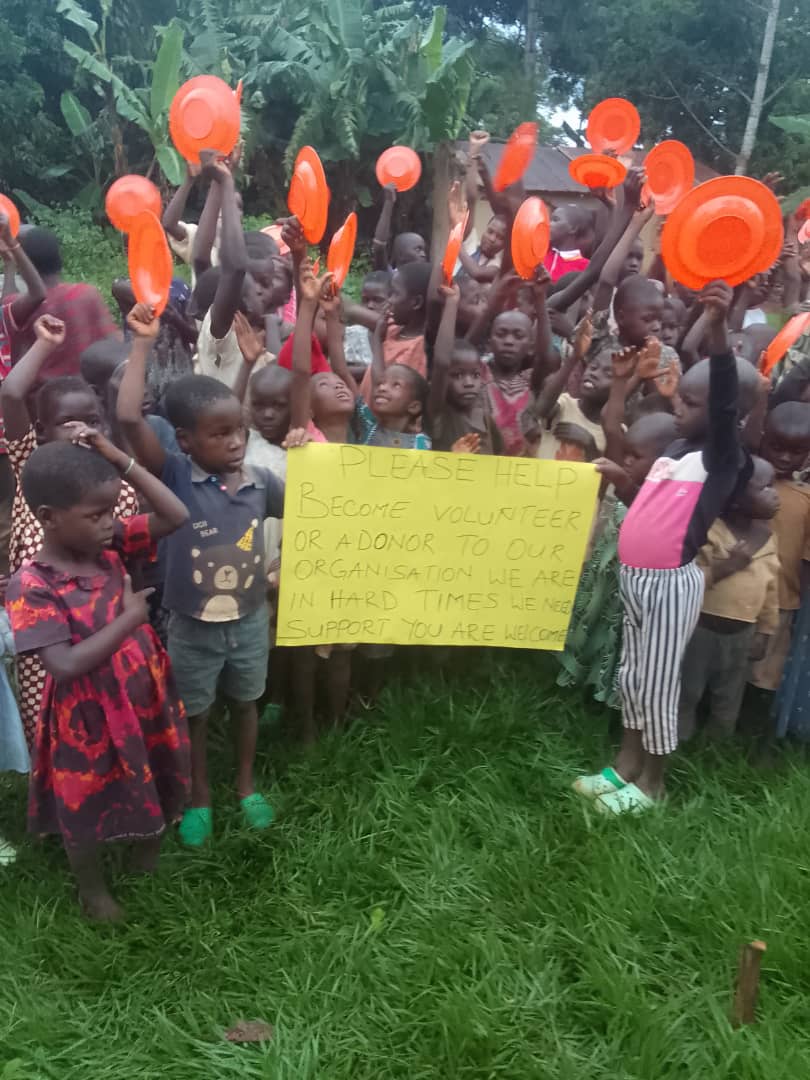 PLEASE HELP
BECOME VOLUNTEER
OR A DONOR TO OUR
ORGANISATION WE ARE
IN HARD TIMES WE NEED
SUPPORT YOU ARE WELCOME
BEAR